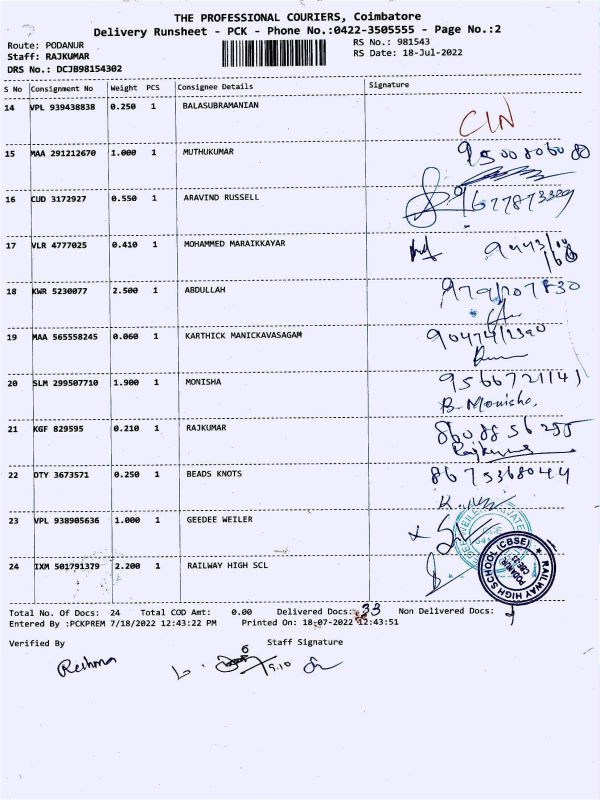 THE PROFESSIONAL COURIERS, Coimbatore
Delivery Runsheet - PCK - Phone No.:0422-3505555 - Page No.:2
Route: PODANUR RS No.: 981543
Staff: RAJKUMAR RS Date: 18-Jul-2022
DRS No.: DCJB98154302
S No Consignment No Weight PCS Consignee Details Signature
14 VPL 939438838 0.250 1 BALASUBRAMANIAN
CIN
15 MAA 291212670 1.000 1 MUTHUKUMAR
16 CUD 3172927 0.550 1 ARAVIND RUSSELL
17 VLR 4777025 0.410 1 MOHAMMED MARAIKKAYAR
18 KWR 5230077 2.500 1 ABDULLAH
19 MAA 565558245 0.060 1 KARTHICK MANICKAVASAGAM
20 SLM 299507710 1.900 1 MONISHA 9566721141
B. Monisha.
21 KGF 829595 0.210 1 RAJKUMAR
Rajkumar
22 DTY 3673571 0.250 1 BEADS KNOTS 8675368044
23 VPL 938905636 1.000 1 GEEDEE WEILER
24 IXM 501791379 2.200 1 RAILWAY HIGH SCL
RAILWAY HIGH SCHOOL (CBSE)
PODANUR
Total No. Of Docs: 24 Total COD Amt: 0.00 Delivered Docs: 33 Non Delivered Docs:
Entered By :PCKPREM 7/18/2022 12:43:22 PM Printed On: 18-07-2022 12:43:51
Verified By Staff Signature
Reshma